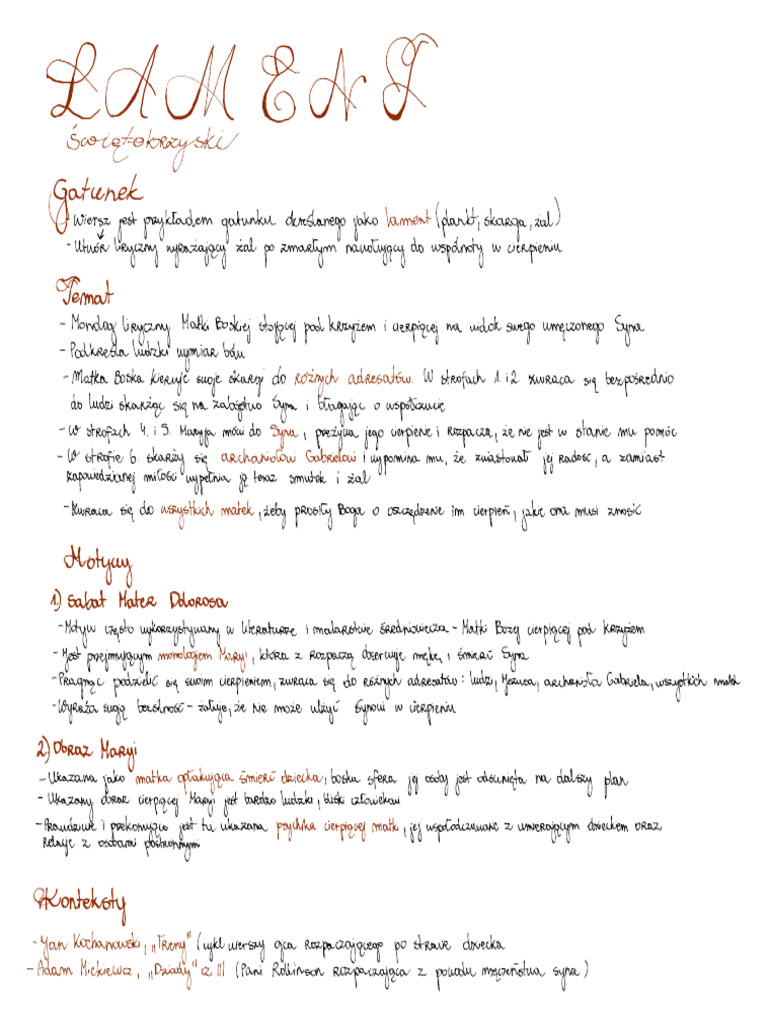 LAMENT
świętokrzyski
Gatunek
- Wiersz jest przykładem gatunku określanego jako lament (plankt, skarga, żal)
- Utwór liryczny wyrażający żal po zmarłym nawołujący do wspólnoty w cierpieniu
Temat
- Monolog liryczny Matki Boskiej stojącej pod krzyżem i cierpiącej na widok swego umęczonego Syna
- Podkreśla ludzki wymiar bólu
- Matka Boska kieruje swoje skargi do różnych adresatów. W strofach 1 i 2 zwraca się bezpośrednio
do ludzi skarżąc się na zabójstwo Syna i błagając o współczucie
- W strofach 4. i 5. Maryja mówi do Syna, przeżywa jego cierpienie i rozpacza, że nie jest w stanie mu pomóc
- W strofie 6. skarży się archaniołowi Gabrielowi i wypomina mu, że zwiastował jej radość, a zamiast
zapowiedzianej miłości wypełnia ją teraz smutek i żal
- Zwraca się do wszystkich matek, żeby prosiły Boga o oszczędzenie im cierpień, jakie ona musi znosić
Motywy
1) Sabat Mater Dolorosa
- Motyw często wykorzystywany w literaturze i malarstwie średniowiecza - Matki Bożej cierpiącej pod krzyżem
- Jest przejmującym monologiem Maryi, która z rozpaczą obserwuje mękę i śmierć Syna
- Pragnąc podzielić się swoim cierpieniem, zwraca się do różnych adresatów: ludzi, Jezusa, archanioła Gabriela, wszystkich matek
- Wyraża swoją bezsilność - żałuje, że nie może ulżyć Synowi w cierpieniu
2) Obraz Maryi
- Ukazana jako matka opłakująca śmierć dziecka, boska sfera jej osoby jest odsunięta na dalszy plan
- Ukazany obraz cierpiącej Maryi jest bardzo ludzki, bliski człowiekowi
- Prawdziwie i przekonująco jest tu ukazana psychika cierpiącej matki, jej współodczuwanie z umierającym dzieckiem oraz
relacje z osobami postronnymi
Konteksty
- Jan Kochanowski, „Treny" (cykl wierszy ojca rozpaczającego po stracie dziecka
- Adam Mickiewicz, „Dziady" cz. III (Pani Rollinson rozpaczająca z powodu męczeństwa syna)